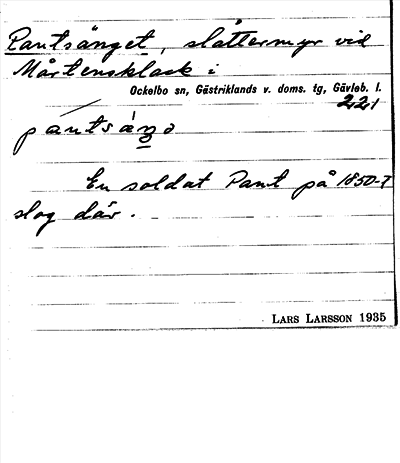 Pantsänget, slåttermyr vid
Mårtensklack i
Ockelbo sn, Gästriklands v. doms. tg, Gävleb. l.
221
pantsäŋə
En soldat Pant på 1850-T
slog där.
LARS LARSSON 1935